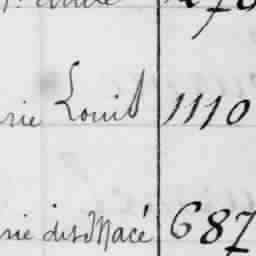 rie Louis 1110
rie dit Macé 687